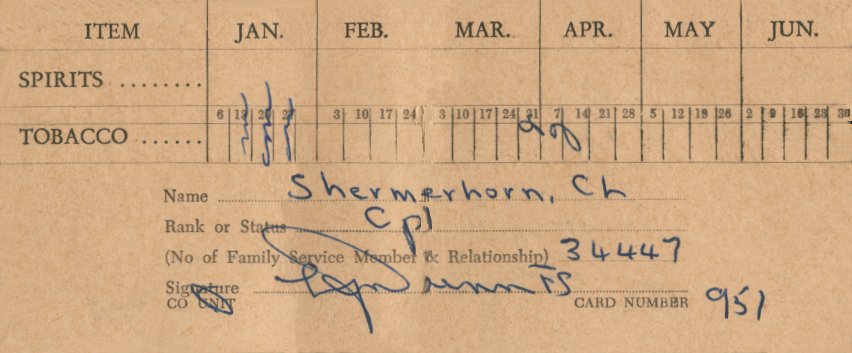 ITEM JAN. FEB. MAR. APR. MAY JUN.
SPIRITS ........
6 13 20 27 3 10 17 24 3 10 17 24 31 7 14 21 28 5 12 19 26 2 9 16 23 30
TOBACCO ......
Name Shermerhorn, Ch
Rank or Status Cpl
(No of Family Service Member & Relationship) 34447
Signature
CO UNIT CARD NUMBER 951